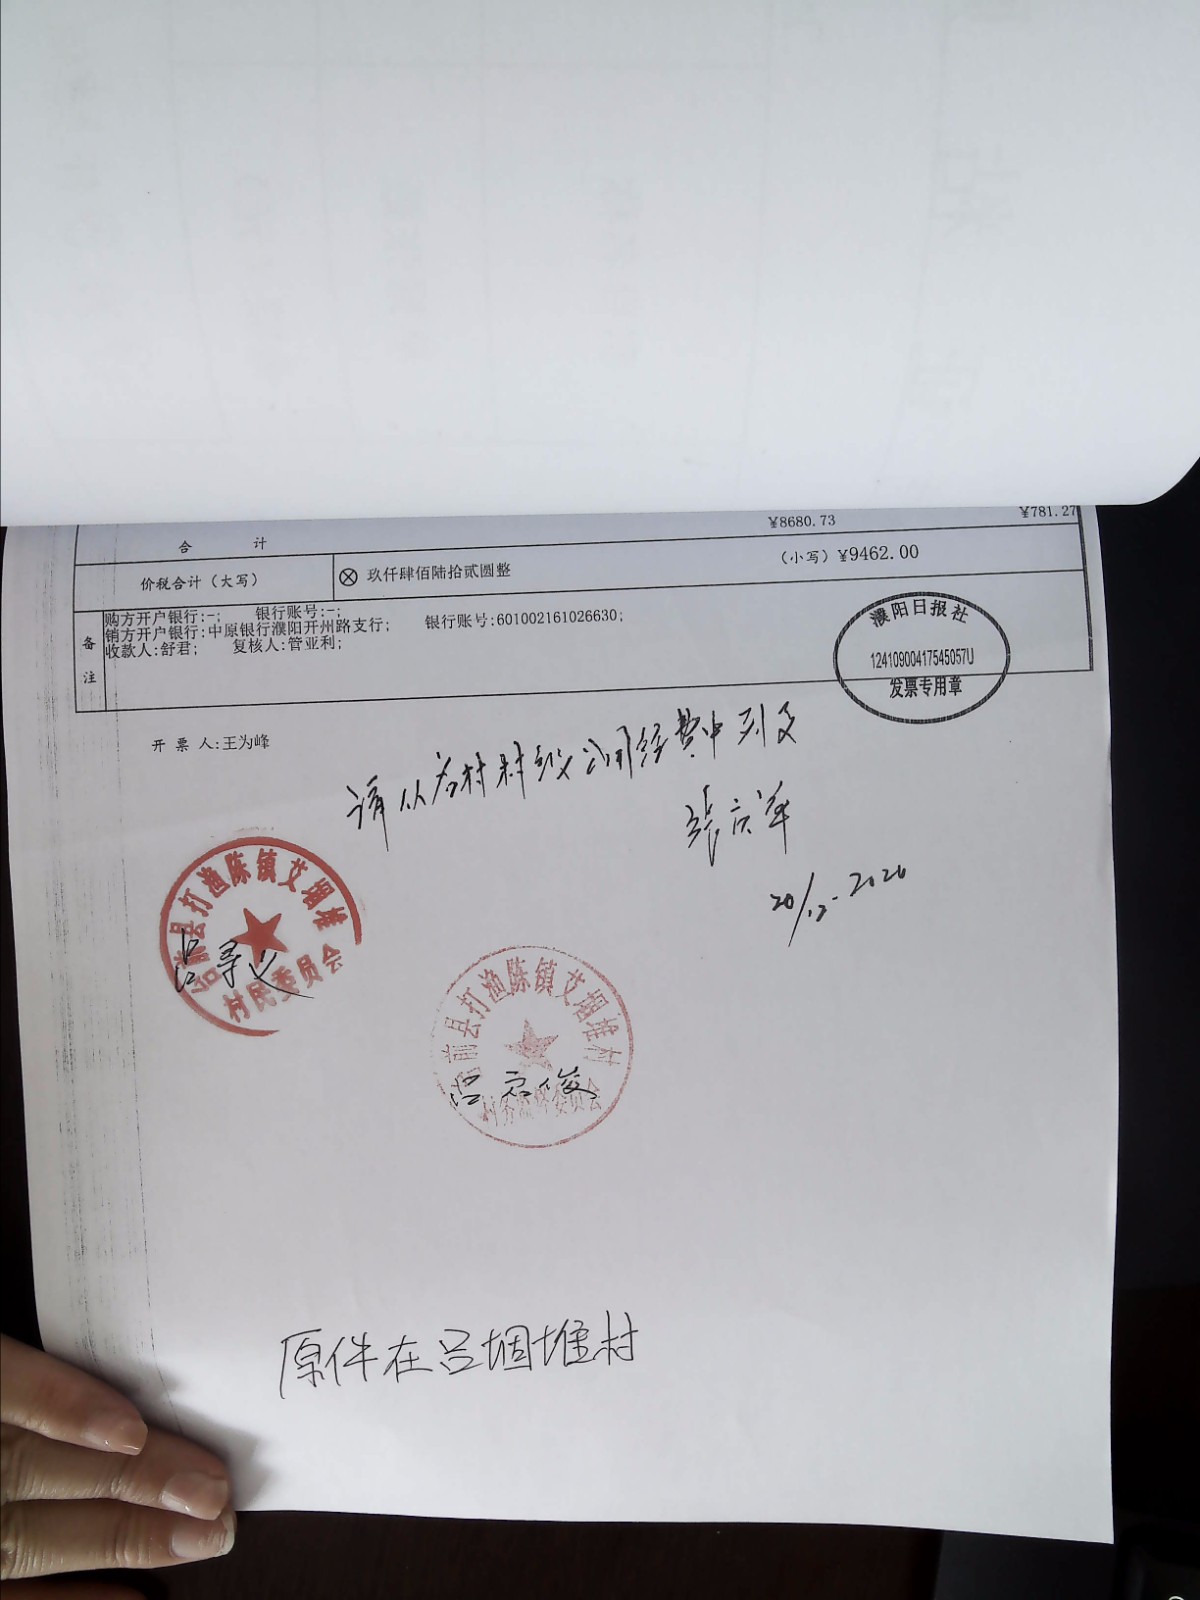 合 计 ¥8680.73 ¥781.27
价税合计（大写） ⊗ 玖仟肆佰陆拾贰圆整 （小写）¥9462.00
备注
购方开户银行:-; 银行账号:-;
销方开户银行:中原银行濮阳开州路支行; 银行账号:601002161026630;
收款人:舒君; 复核人:管亚利;
濮阳日报社
12410900417545057U
发票专用章
开 票 人:王为峰
请从各村村级公用经费中列支
20/12-2024
台前县打渔陈镇艾堌堆
村民委员会
台前县打渔陈镇艾堌堆村
村务监督委员会
原件在吕堌堆村